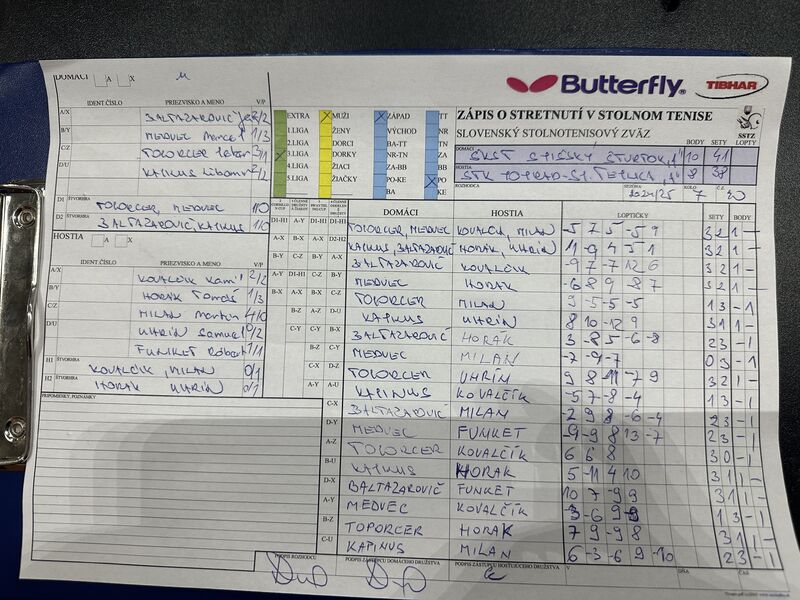 DOMÁCI A X
Butterfly TIBHAR
IDENT ČÍSLO PRIEZVISKO A MENO V/P
A/X BALTAZAROVIČ 2/2
B/Y MEDVEC 1/3
C/Z TOPORCER 3/1
D/U KAPINUS 2/2
D1 ŠTVORHRA TOPORCER, MEDVEC 1/0
D2 ŠTVORHRA BALTAZAROVIČ, KAPINUS 1/0
HOSTIA A X
IDENT ČÍSLO PRIEZVISKO A MENO V/P
A/X KOVALČÍK Kamil 2/2
B/Y HORÁK Tomáš 1/3
C/Z MILAN Martin 4/0
D/U UHRÍN Samuel 0/2
FUNKET Róbert 1/1
H1 ŠTVORHRA KOVALČÍK, MILAN 0/1
H2 ŠTVORHRA HORÁK UHRÍN 0/1
PRIPOMIENKY, POZNÁMKY
EXTRA X MUŽI X ZÁPAD TT
1.LIGA ŽENY VÝCHOD NR
2.LIGA DORCI BA-TT TN
X 3.LIGA DORKY NR-TN ZA
4.LIGA ŽIACI ZA-BB BB
5.LIGA ŽIAČKY PO-KE X PO
BA KE
ZÁPIS O STRETNUTÍ V STOLNOM TENISE
SLOVENSKÝ STOLNOTENISOVÝ ZVÄZ
SSTZ
BODY SETY LOPTY
DOMÁCI ŠKST SPIŠSKÝ ŠTVRTOK "A" 10 41
HOSTIA STK POPRAD-ST. TEPLICA "A" 8 38
ROZHODCA SEZÓNA 2024/25 KOLO 7
DOMÁCI HOSTIA LOPTIČKY SETY BODY
TOPORCER, MEDVEC KOVALČÍK, MILAN -5 7 5 -5 9 3 2 1 -
KAPINUS, BALTAZAROVIČ HORÁK, UHRÍN 11 -9 4 5 1 -
BALTAZAROVIČ KOVALČÍK -9 7 -7 12 6 3 2 1 -
MEDVEC HORÁK -6 8 9 -8 7 3 2 1 -
TOPORCER MILAN 9 -5 -5 -5 1 3 - 1
KAPINUS UHRÍN 8 10 -12 9 3 1 1 -
BALTAZAROVIČ HORÁK 3 -8 5 -6 -8 2 3 - 1
MEDVEC MILAN -7 -9 -7 0 3 - 1
TOPORCER UHRÍN 9 8 -11 -7 9 3 2 1 -
KAPINUS KOVALČÍK -5 7 -8 -4 1 3 - 1
C-X BALTAZAROVIČ MILAN -2 9 8 -6 -4 2 3 - 1
D-Y MEDVEC FUNKET -9 -9 8 13 -7 2 3 - 1
A-Z TOPORCER KOVALČÍK 6 6 8 3 0 1 -
B-U KAPINUS HORÁK 5 -11 4 10 3 1 1 -
D-X BALTAZAROVIČ FUNKET 10 7 -9 9 3 1 1 -
A-Y MEDVEC KOVALČÍK 1 3 - 1
B-Z TOPORCER HORÁK 7 9 -9 8 3 1 1 -
C-U KAPINUS MILAN 6 -3 -6 9 -10 2 3 - 1
PODPIS ROZHODCU PODPIS ZÁSTUPCU DOMÁCEHO DRUŽSTVA PODPIS ZÁSTUPCU HOSŤUJÚCEHO DRUŽSTVA V DŇA